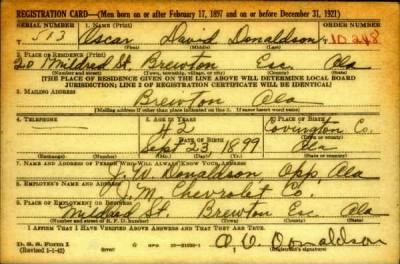 REGISTRATION CARD—(Men born on or after February 17, 1897 and on or before December 31, 1921)
SERIAL NUMBER 1. NAME (Print) ORDER NUMBER
513 Oscar David Donaldson 10248
(First) (Middle) (Last)
2. PLACE OF RESIDENCE (Print)
20 Mildred St. Brewton Esc. Ala
(Number and street) (Town, township, village, or city) (County) (State)
[THE PLACE OF RESIDENCE GIVEN ON THE LINE ABOVE WILL DETERMINE LOCAL BOARD
JURISDICTION; LINE 2 OF REGISTRATION CERTIFICATE WILL BE IDENTICAL]
3. MAILING ADDRESS
Brewton Ala
[Mailing address if other than place indicated on line 2. If same insert word same]
4. TELEPHONE 5. AGE IN YEARS 6. PLACE OF BIRTH
42 Covington Co.
DATE OF BIRTH (Town or county)
Sept 23, 1899 Ala
(Exchange) (Number) (Mo.) (Day) (Yr.) (State or country)
7. NAME AND ADDRESS OF PERSON WHO WILL ALWAYS KNOW YOUR ADDRESS
J. W. Donaldson, Opp, Ala
8. EMPLOYER'S NAME AND ADDRESS
M Chevrolet Co.
9. PLACE OF EMPLOYMENT OR BUSINESS
Mildred St. Brewton Esc Ala
(Number and street or R. F. D. number) (Town) (County) (State)
I AFFIRM THAT I HAVE VERIFIED ABOVE ANSWERS AND THAT THEY ARE TRUE.
D. S. S. Form 1
(Revised 4-1-42) O. D. Donaldson
(Registrant's signature)